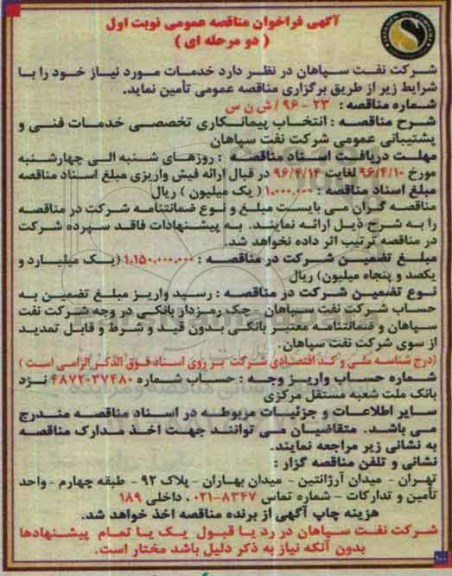 آگهی فراخوان مناقصه عمومی نوبت اول
( دو مرحله ای )
شرکت نفت سپاهان در نظر دارد خدمات مورد نیاز خود را با
شرایط زیر از طریق برگزاری مناقصه عمومی تأمین نماید.
شماره مناقصه : ۲۳ - ۹۶ / ش ن س
شرح مناقصه : انتخاب پیمانکاری تخصصی خدمات فنی و
پشتیبانی عمومی شرکت نفت سپاهان
مهلت دریافت اسناد مناقصه : روزهای شنبه الی چهارشنبه
مورخ ۹۶/۴/۱۰ لغایت ۹۶/۴/۱۴ در قبال ارائه فیش واریزی مبلغ اسناد مناقصه
مبلغ اسناد مناقصه : ۱.۰۰۰.۰۰۰ ( یک میلیون ) ریال
مناقصه گران می بایست مبلغ و نوع ضمانتنامه شرکت در مناقصه
را به شرح ذیل ارائه نمایند. به پیشنهادات فاقد سپرده شرکت
در مناقصه ترتیب اثر داده نخواهد شد.
مبلغ تضمین شرکت در مناقصه : ۱.۱۵۰.۰۰۰.۰۰۰ (یک میلیارد و
یکصد و پنجاه میلیون) ریال
نوع تضمین شرکت در مناقصه : رسید واریز مبلغ تضمین به
حساب شرکت نفت سپاهان - چک رمزدار بانکی در وجه شرکت نفت
سپاهان و ضمانتنامه معتبر بانکی بدون قید و شرط و قابل تمدید
از سوی شرکت نفت سپاهان.
(درج شناسه ملی و کد اقتصادی شرکت بر روی اسناد فوق الذکر الزامی است )
شماره حساب واریز وجه : حساب شماره ۴۸۷۲۰۳۷۴۸۰ نزد
بانک ملت شعبه مستقل مرکزی
سایر اطلاعات و جزئیات مربوطه در اسناد مناقصه مندرج
می باشد. متقاضیان می توانند جهت اخذ مدارک مناقصه
به نشانی زیر مراجعه نمایند.
نشانی و تلفن مناقصه گزار :
تهران - میدان آرژانتین - میدان بهاران - پلاک ۹۲ - طبقه چهارم - واحد
تأمین و تدارکات - شماره تماس ۸۳۴۷-۰۲۱ داخلی ۱۸۹
هزینه چاپ آگهی از برنده مناقصه اخذ خواهد شد.
شرکت نفت سپاهان در رد یا قبول یک یا تمام پیشنهادها
بدون آنکه نیاز به ذکر دلیل باشد مختار است.